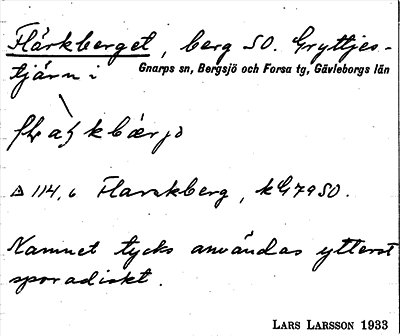 Flärkberget, berg SO. Gryttjes-
tjärn i Gnarps sn, Bergsjö och Forsa tg, Gävleborgs län
∆ 114,6 Flarakberg, k G79 SO.
Namnet tycks användas ytterst
sporadiskt.
LARS LARSSON 1933